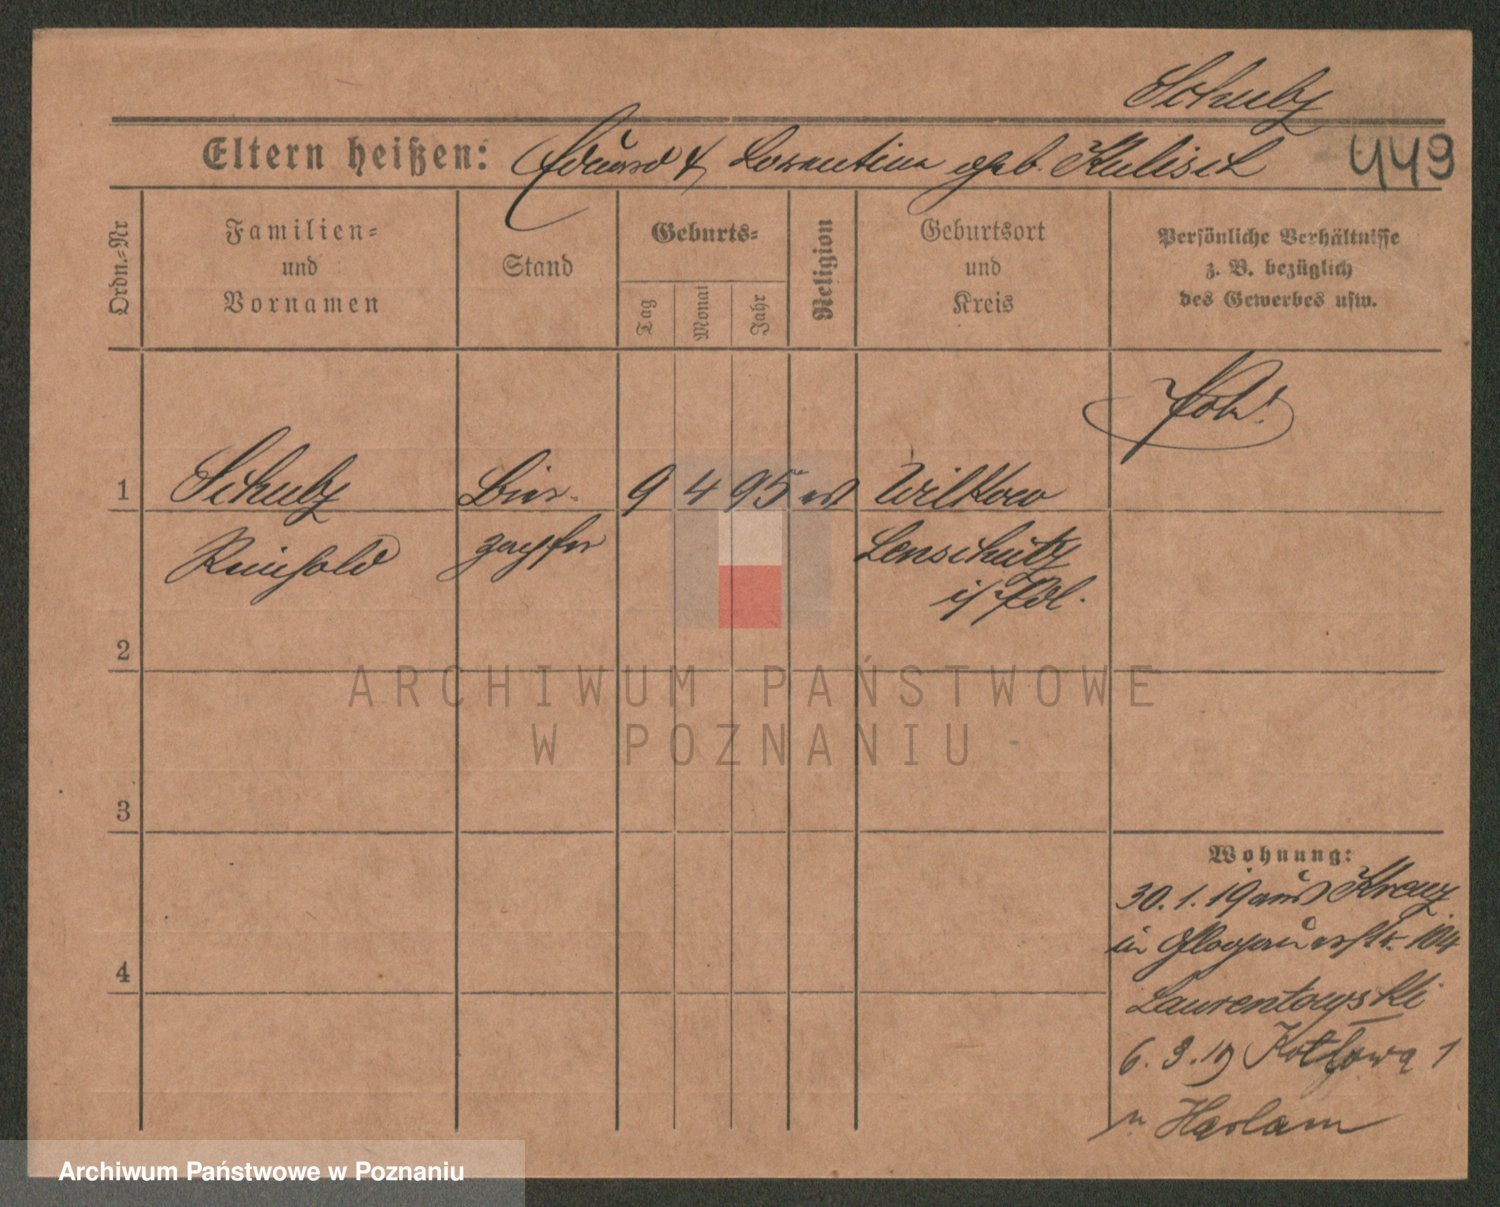 Schulz
Eltern heißen: Eduard & Lorentina geb. Kulisch 449
Ordn.-Nr
Familien-
und
Vornamen
Stand
Geburts-
Tag
Monat
Jahr
Religion
Geburtsort
und
Kreis
Persönliche Verhältnisse
z. B. bezüglich
des Gewerbes usw.
1 Schulz Bier- 9 4 95 ev Wilkow
Reinhold zapfer Lenschütz
i/ Pol.
2
3
4
Wohnung:
30. 1. 19 aus Kreuz
in Glogauerstr. 104
Laurentowski
6. 3. 19
n Harlam
ARCHIWUM PAŃSTWOWE
W POZNANIU
Archiwum Państwowe w Poznaniu